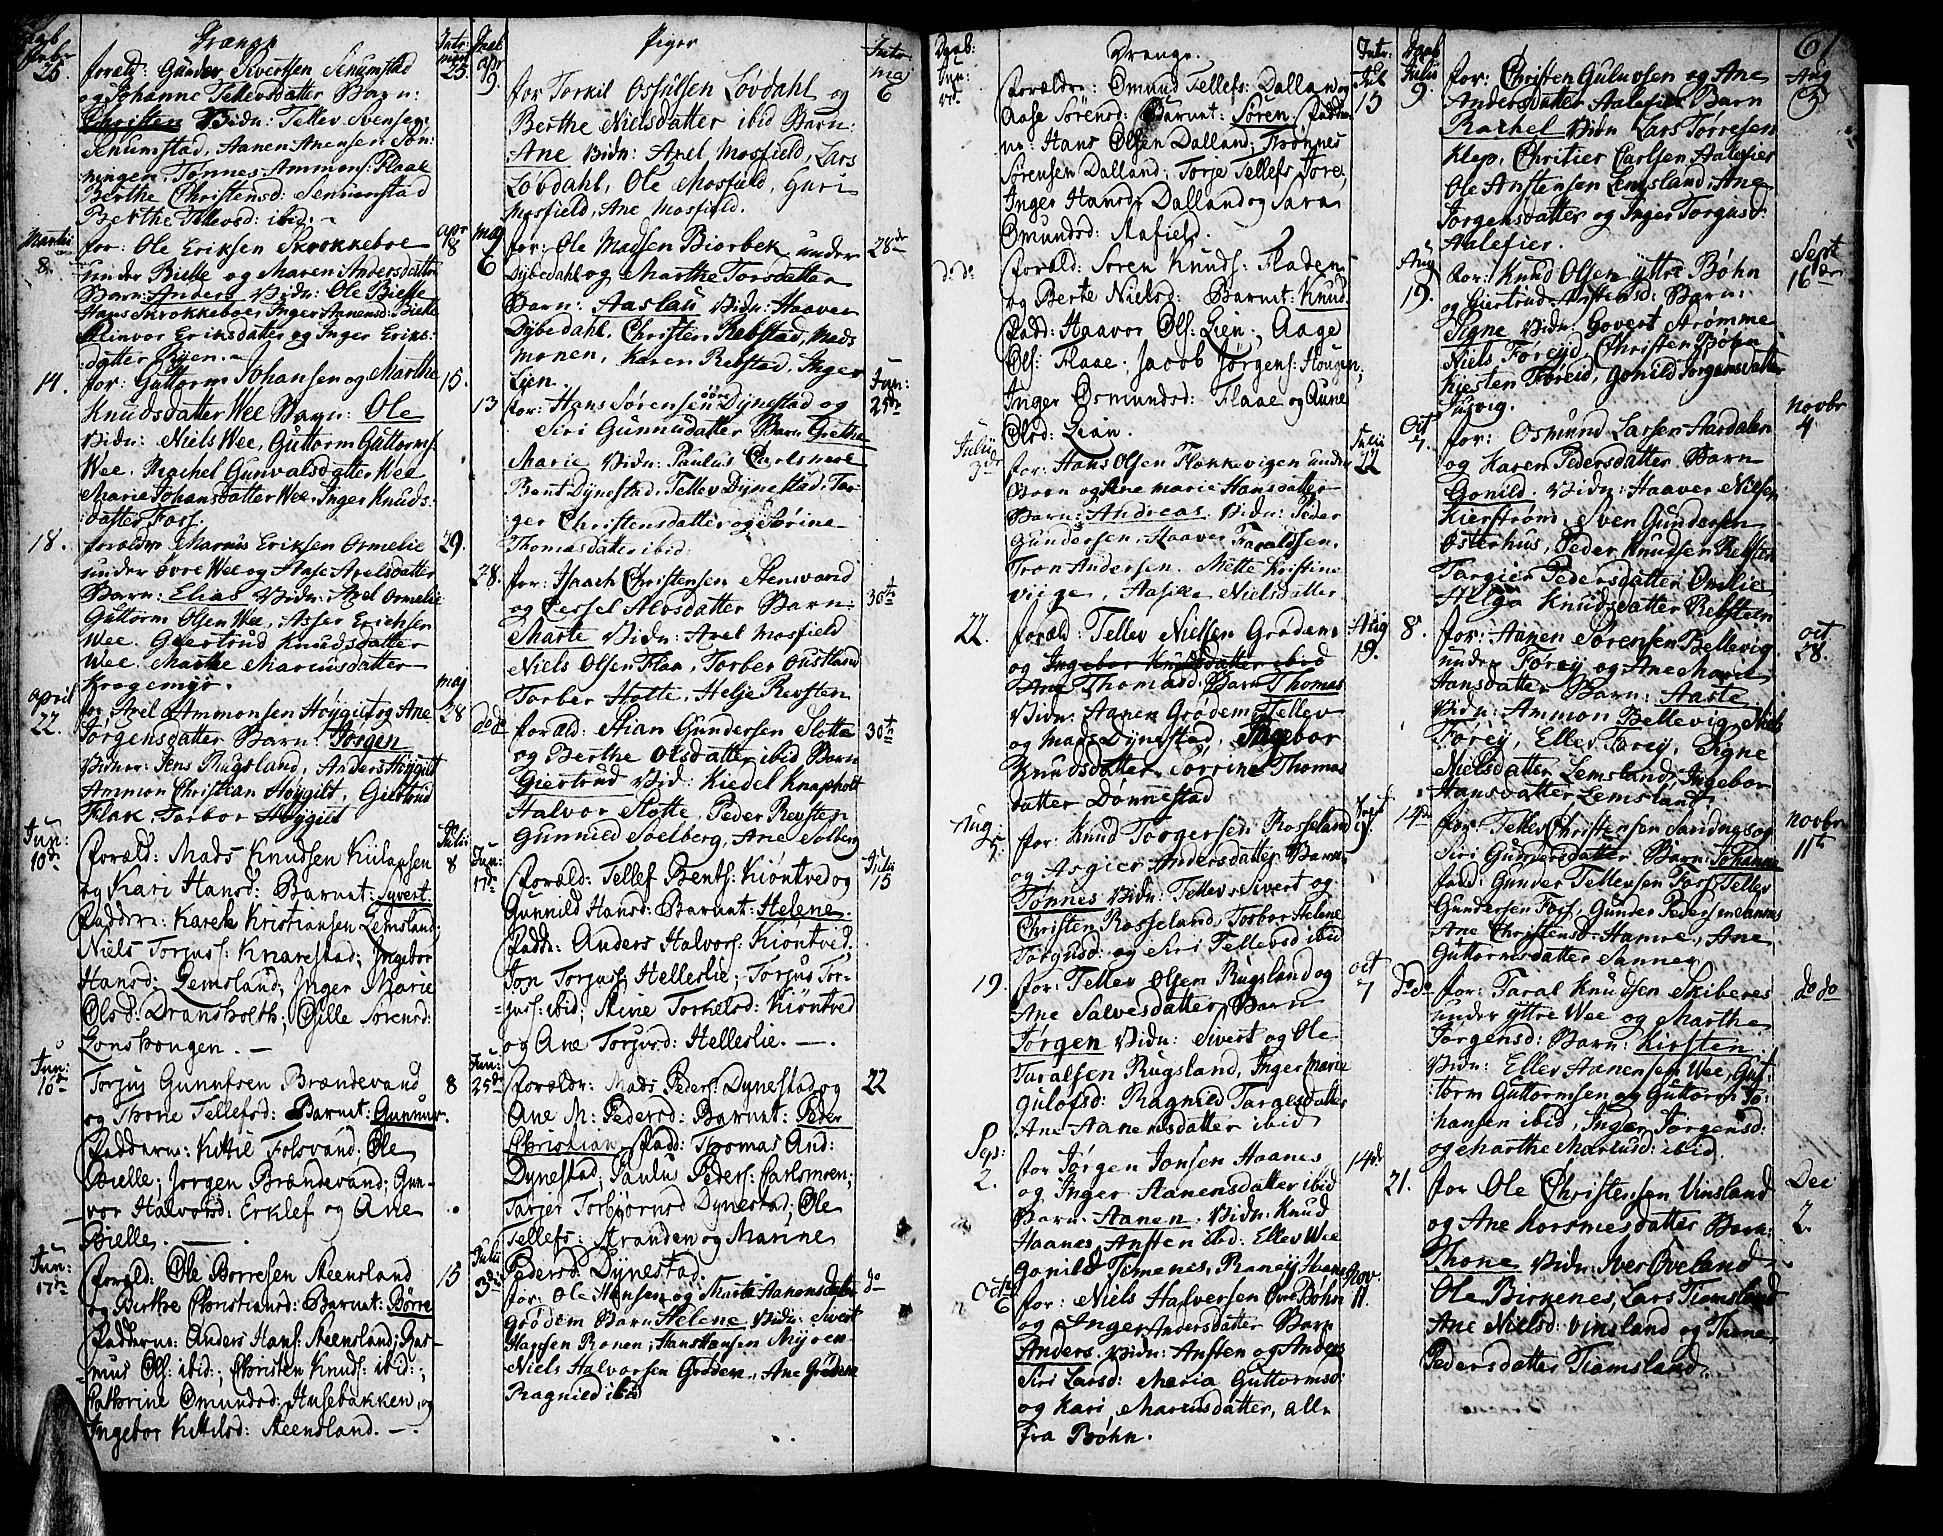 Drænge
Febr 25
foræld: Gunder Sivertsen Senumstad
og Johanne Tellevsdatter Barn:
Christen Vidn: Tellev Svensen
Senumstad, Aanen Anensen Søn
ningen, Tønnes Ammons: Flaae
Berthe Christensd: Senumstad
Berthe Tellevsd: ibid:
Martii 8
for: Ole Eriksen Skrokkeboe
under Bielle og Maren Andersdatter
Barn: Anders Vidn: Ole Bielle
Hans Skrokkeboe, Inger Aanensd: Bielle
Elinvor Eriksdatter og Inger Eriks-
datter Rijen.
apr 18
14.
for: Guttorm Johansen og Marthe
Knudsdatter Wee Barn: Ole
Vidn: Niels Wee, Guttorm Guttorms
Wee. Rachel Gunvalsdatter Wee
Marie Johansdatter Wee. Inger Knuds-
datter Foss.
15.
18.
forældr Marcus Eriksen Ormelie
under øvre Wee og Aase Axelsdatter
Barn: Elias Vidn: Axel Ormelie
Guttorm Olsen Wee, Asser Erichsen
Wee. Giertrud Knudsdatter
Wee. Marthe Marcusdatter
Kragemyr.
29.
April 22.
for Axel Ammonsen Høygilt og Ane
Jørgensdatter Barn: Jørgen
Vidner: Jens Rugsland, Anders Høygilt
Ammon Christian Høygilt, Giertrud
Flak, Torbor Høygilt
maj 28
Jun: 10de
foræld: Mads Knudsen Kielansen
og Kari Hansd: Barnet: Syvert.
Faddrn: Karele Kristiansen Lemsland;
Niels Torjuss: Knarestad; Ingebor
Hansd: Lemsland; Inger Marie
Olsd: Dransholth; Gille Sørensd:
Lonshougen. —
Julii 8
Jun: 16de
Torjus Gunufsen Brændevand
og Thone Tellefsd: Barnet: Gunuur.
Fadderne: Kittil Folsvand; Ole
Bielle; Jørgen Brændevand; Gun-
vor Halvorsd: Erklef og Ane
Bielle. —
8
Jun: 17de
foræld: Ole Børresen Steensland
og Berthe Christiansd: Barnet: Børre
Fadderne: Anders Hans: Steensland; Ras-
mus Ols: ibid:; Christen Knuds: ibid:;
Cathrine Omundsd: Husebakken, og
Ingebor Kittilsd: Steensland. —.
15
Piger
apr 9
for Torkil Osfulsen Løvdahl og
Berthe Nielsdatter ibid Barn:
Ane Vidn: Axel Mosfield, Lars
Løvdahl, Ole Mosfield, Guri
Mosfield, Ane Mosfield.
maj 6
maj 6
for: Ole Madsen Biorbek under
Dybedahl og Marthe Torsdatter
Barn: Aaslau Vidn: Haaver
Dybedahl. Christen Rebstad, Mads
monen, Karen Rebstad, Inger
Lien.
28de
13
for: Hans Sørensen øvre Dynestad og
Siri Gunnudatter Barn: Grethe
Marie Vidn: Paulus Carlsmoe
Bent Dynestad, Tellev Dynestad, Tar-
ger Christensdatter og Sørine
Thomasdatter ibid:
Jun: 25de
28.
for: Isaach Christensen Stensvand
og Tessel Alvsdatter Barn:
Marte Vidn: Axel Mosfield
Niels Olsen Flaa, Torber Oustland
Torber Holte, Helje Revsten
30te
dodo
forald: Stian Gundersen Slotte
og Berthe Olsdatter ibid Barn
Giertrud Vid: Kiedel Knapholt
Halvor Slotte, Peder Revsten
Gunnild Soelberg, Ane Solberg
30te
Jun: 17de
foræld: Tellef Bents: Kiøntved og
Gunnild Hansd: Barnet: Helene.
Faddr: Anders Halvors: Kiøntved;
Jon Torjuss: Helleslie; Torjus Tor-
jus: ibid; Stine Torkelsd: Kiøntved
og Ane Torjusd: Helleslie. —.
Julii 15
Jun: 25de
forældr: Mads Peders: Dynestad og
Ane M: Pedersd: Barnet: Peder
Christian, Fadd: Thomas And:
Dynestad; Paulus Peders: Carlsmoen;
Tarjer Torbjørnsd Dynestad; Ole
Tellefs: Stranden og Marine
Pedersd: Dynestad.
22
Julii 3de
for: Ole Hansen og Marte Aanensdatter
Grødem Barn Helene Vidn: Sivert
Hansen Ronen, Hans Hansen Myren
Niels Halvorsen Grødem, Ane Grødem
Ragnild ibid
do
Drenge.
Daab: Jun: 17de
forældre: Omund Tellefs: Dalland og
Aase Sørensd: Barnet: Søren. Fadder
ne: Hans Olsen Dalland; Trønnes
Sørensen Dalland; Torje Tellefs: Tore,
Inger Hansd: Dalland og Sara
Omundsd: Aafield.
Jul 15
dodo
foræld: Søren Knuds: Fladen
og Berte Nielsd: Barnet: Knud.
Fadd: Haavor Ols: Lien; Aage
Ols: Flaae; Jacob Jørgens: Hougen;
Inger Osmundsd: Flaae og Aune
Olsd: Lien.
Julii 3de
for: Hans Olsen Flokkevigen under
Børn og Ane Marie Hansdatter
Barn: Andreas. Vidn: Peder
Gundersen, Haaver Taraldsen,
Tron Andersen. Mette Kristine
Viige, Aasike Nielsdatter
Julii 22
22.
foræld: Tellev Nielsen Grødem
og Ingebor Knudsdatter ibid
Ane Thomasd: Barn Thomas
Vidn: Aanen Grødem, Tellev
og Mads Dynestad, Ingebor
Knudsdatter, Sørrine Thomas
datter Dønnestad
Aug 19.
Aug: 5
for: Knud Torgersen Rosseland
og Asgier Andersdatter Barn
Tønnes Vidn: Tellev Sivert og
Christen Rosseland, Torbor Helene
Torgusd: og Siri Tellevsd ibid
19.
for: Tellev Olsen Rugsland og
Ane Salvesdatter Barn
Jørgen Vidn: Sivert og Ole
Taralsen Rugsland, Inger Marie
Gulofsd: Ragnild Targesdatter
Ane Aanensdatter ibid
oct 7
Sep: 2.
for Jørgen Jonsen Haanes
og Inger Aanensdatter ibid
Barn: Aanen. Vidn: Knud
Haanes, Ansten ibid: Ellev Wee
Gonild Temenes, Raney Svene
14de
Octo 6
for: Niels Halversen Øvre Bøhn
og Inger Andersdatter Barn
Anders. Vidn: Ansten og Anders
Siri Larsd: Maria Guttormsd:
og Kari Marcusdatter, alle
fra Bøhn.
Nov. 11.
61
Daab Julii 9.
for: Christen Guluvsen og Ane
Andersdatter Aalefier Barn
Rachel Vidn Lars Torresen
Klep, Chritier Carlsen Aalefier
Ole Anstensen Lemsland, Ane
Jørgensdatter og Inger Torgusd:
Aalefier.
Aug 5
Aug 19.
for: Knud Olsen Yttre Bøhn
og Giertrud Anstensd: Barn:
Signe Vidn: Govert Strømme
Niels Førejd, Christen Bøhn
Kiesten Føreid, Gonild Jørgensdatter
Julvig.
Sept 16de
Oct 7.
for: Osmund Larsen Aardalen
og Karen Pedersdatter Barn
Gonild. Vidn: Haaver Nielsen
Kierstrøm, Sven Gundersen
Østerhus, Peder Knudsen Rebsten
Targier Pedersdatter Omlie
Helga Knudsdatter Rebsteen
Novbr 4
8.
for: Aanen Sørensen Bellevig
under Førej og Ane Marie
Hansdatter Barn: Aaste
Vidn: Ammon Bellevig, Niels
Førej, Ellev Førej, Signe
Nielsdatter Lemsland, Ingebor
Hansdatter Lemsland
oct 28.
14de
for: Tellev Christensen Sandnes og
Siri Gundersdatter Barn: Johanne
fadd: Gunder Tellevsen Foss, Tellev
Gundersen Foss, Gunder Pedersen Sannes
Ane Christensd: Hamre, Ane
Guttormsdatter Sannes
Novbr 11te
dodo
for: Taral Knudsen Skiberes
under yttre Wee og Marthe
Jørgensd: Barn: Kirsten
Vidn: Ellev Aanensen Wee, Gut-
torm Guttormsen og Guttorm Jo-
hansen ibid, Inger Jørgensd:
og Marthe Marcusd: ibid
dodo
21.
for Ole Christensen Vinsland
og Ane Korsmesdatter Barn:
Thone Vidn: Iver Øveland
Ole Birkenes, Lars Tiamsland
Ane Nielsd: Vinsland og Thone
Pedersdatter Tiamsland.
Dec 2.